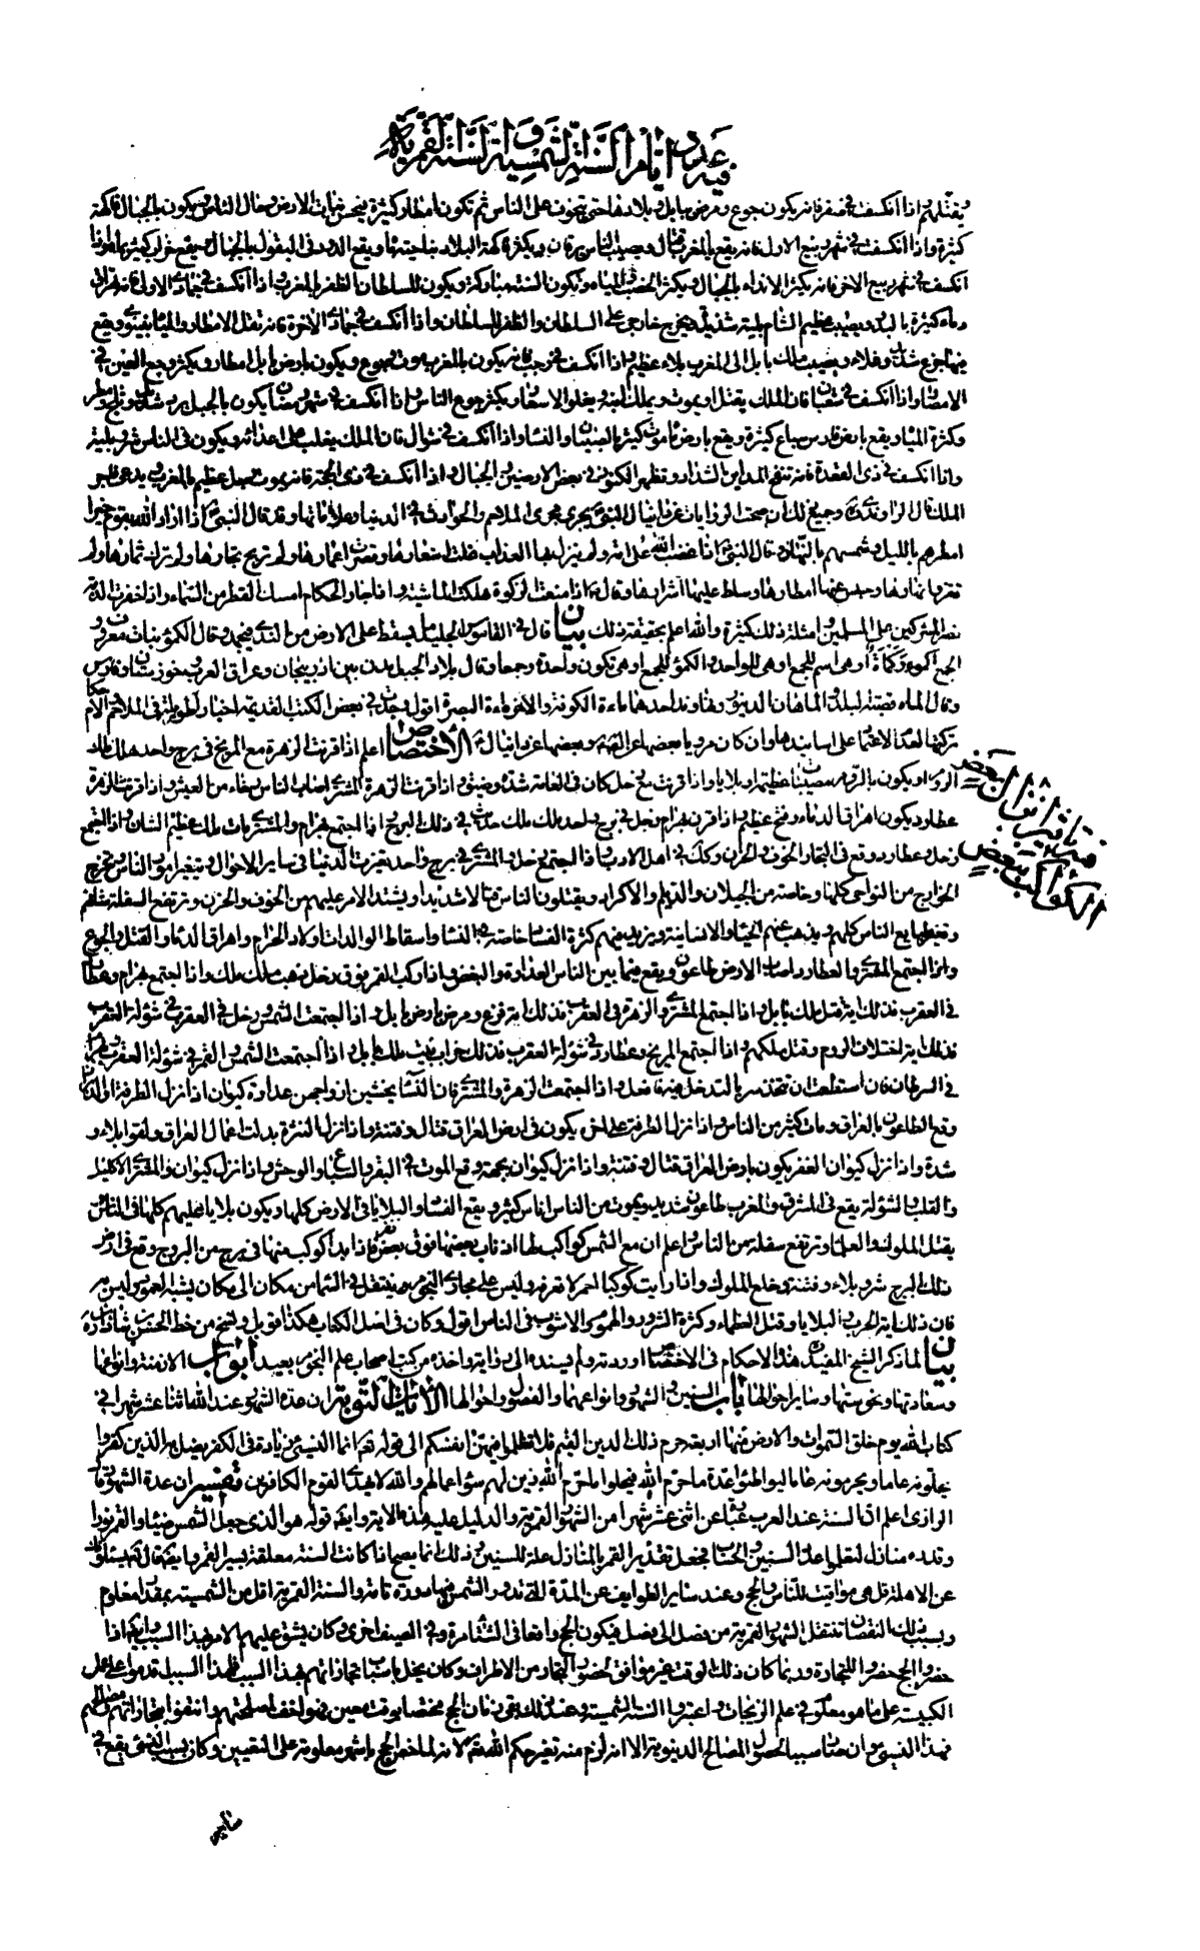 فيه عدد أيام السنة الشمسية والسنة القمرية
يقتلهم واذا انكسفت في صفر فانه يكون جوع ومرض ببابل وبلادها حتى يتخوف على الناس ثم تكون امطار كثيرة فيحسن نبات الارض وحال الناس ويكون بالجبال فاكهة
كثيرة واذا انكسفت في شهر ربيع الاول فانه يقع بالمغرب قتال ويصيب الناس يرقان ويكثر فاكهة البلاد بناحية ماه ويقع الدود في البقول بالجبال ويقع خراب كثير بماه واذا
انكسفت في شهر ربيع الاخر فانه يكثر الانداء بالجبال ويكثر الخصب والمياه وتكون السنة مباركة ويكون للسلطان الظفر بالمغرب واذا انكسفت في جمادى الاولى فانه يهراق
دماء كثيرة بالبدو ويصيب عظيم الشام بلية شديدة ويخرج خارجي على السلطان والظفر للسلطان واذا انكسفت في جمادى الاخرة فانه تقل الامطار والمياه بنينوى ويقع
فيها جزع شديد وغلاء ويصيب ملك بابل الى المغرب بلاء عظيم واذا انكسفت في رجب فانه يكون بالمغرب موت وجوع ويكون بارض بابل امطار ويكثر وجع العين في
الامصار واذا انكسفت في شعبان فان الملك يقتل او يموت ويملك ابنه ويغلو الاسعار ويكثر جوع الناس واذا انكسفت في شهر رمضان يكون بالجبل برد شديد وثلج ومطر
وكثرة المياه ويقع بارض فارس سباع كثيرة ويقع بارض ماه موت كثير بالصبيان والنساء واذا انكسفت في شوال فان الملك يغلب على اعدائه ويكون في الناس شر وبلية
واذا انكسفت في ذي القعدة فانه تفتح المداين الشداد وتظهر الكنوز في بعض الارضين والجبال واذا انكسفت في ذي الحجة فانه يموت رجل عظيم بالمغرب ويدعى فاجر
الملك قال الراوندي وجميع ذلك ان صحت الروايات عن دانيال النبي يجري مجرى الملاحم والحوادث في الدنيا وعلاماتها وقد قال النبي اذا اراد الله بقوم خيرا
امطرهم بالليل وشمسهم بالنهار وقال النبي اذا غضب الله على امة ولم ينزل بها العذاب غلت اسعارها وقصرت اعمارها ولم تربح تجارها ولم تزك ثمارها ولم
تغزر انهارها وحبس عنها امطارها وسلط عليها اشرارها وقال اذا منعت الزكوة هلكت الماشية واذا جار الحكام امسك القطر من السماء واذا خفرت الذمة
نصر المشركين على المسلمين وامثلة ذلك كثيرة والله اعلم بحقيقة ذلك بيان قال في القاموس الجليد ما يسقط على الارض من الندى فيجمد وقال الكمؤ نبات معروف
الجمع اكمؤ وكمأة او هي اسم للجمع او هي للواحد والكمؤ للجمع او هي تكون واحدة وجمعا وقال بلاد الجبل مدن بين اذربيجان وعراق العرب وخوزستان وفارس
وقال الماه قصبة البلد والماهان الدينور ونهاوند احدهما ماه الكوفة والاخر ماه البصرة اقول وجدت في بعض الكتب القديمة اخبارا طويلة في الملاحم والاحكام
تركتها لعدم الاعتماد على اسانيدها وان كان مرويا بعضها عن الصادق وبعضها عن دانيال الاختصاص اعلم اذا قرنت الزهرة مع المريخ في برج واحد هلك ملك
الروم او يكون بالروم مصيبات عظيمة او بلايا واذا قرنت مع زحل كان في العامة شدة وضيق واذا قرنت الزهرة المشتري اصاب الناس رخاء من العيش واذا قرنت الزهرة
فيه تأثير اقتران بعض
الكواكب ببعض
عطارد يكون اهراق الدماء وفتح عظيم واذا قرن بهرام وزحل في برج واحد هلك ملك حدث في ذلك البرج اذا اجتمع بهرام والمشتري مات ملك عظيم الشان واذا اجتمع
زحل وعطارد وقع في التجار الخوف والحزن وكذلك في اهل الادب واذا اجتمع زحل والمشتري في برج واحد تغيرت الدنيا في ساير الاحوال وتغير امور الناس وتخرج
الخوارج من النواحي كلها وخاصة من الجيلان والديلم والاكراد ويقتلون الناس قتالا شديدا ويشتد الامر عليهم من الخوف والحزن وترتفع السفلة شانهم
وتغير طبايع الناس كلهم ويذهب عنهم الحياء والانسانية ويزيد فيهم كثرة الفساد خاصة في النساء واسقاط الوالدات اولاد الحرام واهراق الدماء والقتل والجوع
واذا اجتمع المشتري والعطارد اصاب الارض طاعون ويقع فيما بين الناس العداوة والبغض واذا ركب القمر فوق زحل ذهب ملك ملك واذا اجتمع بهرام وعطارد
في العقرب فذلك اية قتل ملك بابل واذا اجتمع المشتري والزهرة في العقرب فذلك اية فزع ومرض بارض بابل واذا اجتمعت الشمس وزحل في العقرب في شولة العقرب
فذلك اية اختلاف الروم وقتل ملكهم واذا اجتمع المريخ وعطارد في شولة العقرب فذلك خراب بيت ملك بابل واذا اجتمعت الشمس والقمر في شولة العقرب وبهرام
في السرطان فان استطعت ان تتخذ سربا لتدخل فيه فافعل واذا اجتمعت الزهرة والمشتري فان النساء يخشين ازواجهن عداوة كيوان اذا نزل الطرفة اولدلك
وقع الطاعون بالعراق ومات كثير من الناس واذا نزل الطرفة على اخر يكون في ارض العراق قتال وفتنة واذا نزل النثرة بدلت اعمال العراق ولقوا بلاء و
شدة واذا نزل كيوان الغفر يكون بارض العراق قتال وفتنة واذا نزل كيوان بجبهة وقع الموت في البقر والسباع والوحش واذا نزل كيوان والمشتري الاكليل
والقلب والشولة يقع في المشرق والمغرب طاعون شديد ويموت من الناس اناس كثير ويقع الفساد والبلايا في الارض كلها ويكون بلايا عليهم كلها في الناس
يقتل الملوك والعلماء وترتفع سفلة من الناس واعلم ان مع الشمس كواكب لها اذناب بعضها فوق بعض فاذا بدا كوكب منها في برج من البروج وقع في ارض
ذلك البرج شر وبلاء وفتنة وخلع الملوك واذا رايت كوكبا احمر لا تعرفه وليس على مجاري النجوم ينتقل في السماء من مكان الى مكان يشبه العمود وليس به
فان ذلك اية الحرب والبلايا وقتل العظماء وكثرة الشرور والهموم والاشوب في الناس اقول وكان في اصل الكتاب هكذا قوبل ونسخ من خط الحسن بن شاذان
بيان لما ذكر الشيخ المفيد هذه الاحكام في الاختصاص اوردته ولم يسنده الى رواية واخذه من كتب اصحاب علم النجوم بعيد ابواب الازمنة وانواعها
وسعادتها ونحوستها وساير احوالها باب السنين والشهور وانواعهما والفصول واحوالها الايات التوبة ان عدة الشهور عند الله اثنا عشر شهرا في
كتاب الله يوم خلق السموات والارض منها اربعة حرم ذلك الدين القيم فلا تظلموا فيهن انفسكم الى قوله تعالى انما النسيء زيادة في الكفر يضل به الذين كفروا
يحلونه عاما ويحرمونه عاما ليواطئوا عدة ما حرم الله فيحلوا ما حرم الله زين لهم سوء اعمالهم والله لا يهدي القوم الكافرين تفسير ان عدة الشهور قال
الرازي اعلم ان السنة عند العرب عبارة عن اثنى عشر شهرا من الشهور القمرية والدليل عليه هذه الاية وايضا قوله هو الذي جعل الشمس ضياء والقمر نورا
وقدره منازل لتعلموا عدد السنين والحساب فجعل تقدير القمر بالمنازل علة للسنين وذلك انما يصح اذا كانت السنة معلقة بسير القمر وايضا قال تعالى يسئلونك
عن الاهلة قل هي مواقيت للناس والحج وعند ساير الطوايف عن المدة التي تدور الشمس فيها دورة تامة والسنة القمرية اقل من السنة الشمسية بمقدار معلوم
وبسبب ذلك النقصان تنتقل الشهور القمرية من فصل الى فصل فيكون الحج واقعا في الشتاء مرة وفي الصيف اخرى وكان يشق عليهم الامر بهذا السبب وايضا اذا
حضروا الحج حضروا للتجارة وربما كان ذلك الوقت غير موافق لحضور التجار من الاطراف وكان يخل باسباب تجاراتهم بهذا السبب فلهذا السبب قدموا على عمل
الكبيسة على ما هو معلوم في علم الزيجات واعتبروا السنة الشمسية وعند ذلك بقي زمان الحج مختصا بوقت معين موافقا لمصلحتهم وانتفعوا بتجاراتهم ومصالحهم
فهذا النسيء وان كان سببا لحصول المصالح الدنيوية الا انه لزم منه تغير حكم الله تعالى لانه لما خص الحج باشهر معلومة على التعيين وكان بسبب النسيء يقع في
ساير